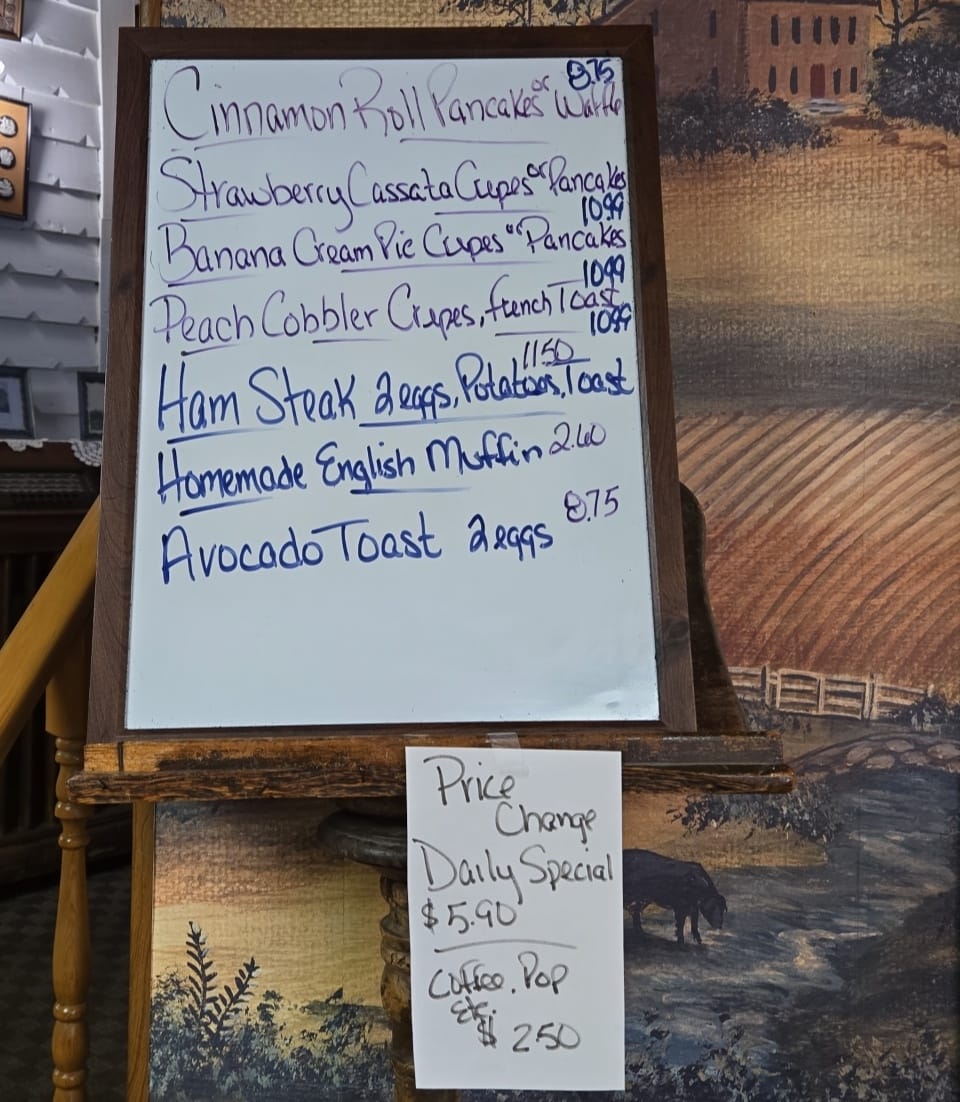 Cinnamon Roll Pancakes or Waffle 8.75
Strawberry Cassata Crepes or Pancakes
1099
Banana Cream Pie Crepes or Pancakes
1099
Peach Cobbler Crepes, french Toast
1099
1150
Ham Steak 2 eggs, Potatoes, Toast
Homemade English Muffin 2.60
Avocado Toast 2 eggs 8.75
Price
Change
Daily Special
$5.90
Coffee. Pop
etc.
$ 250